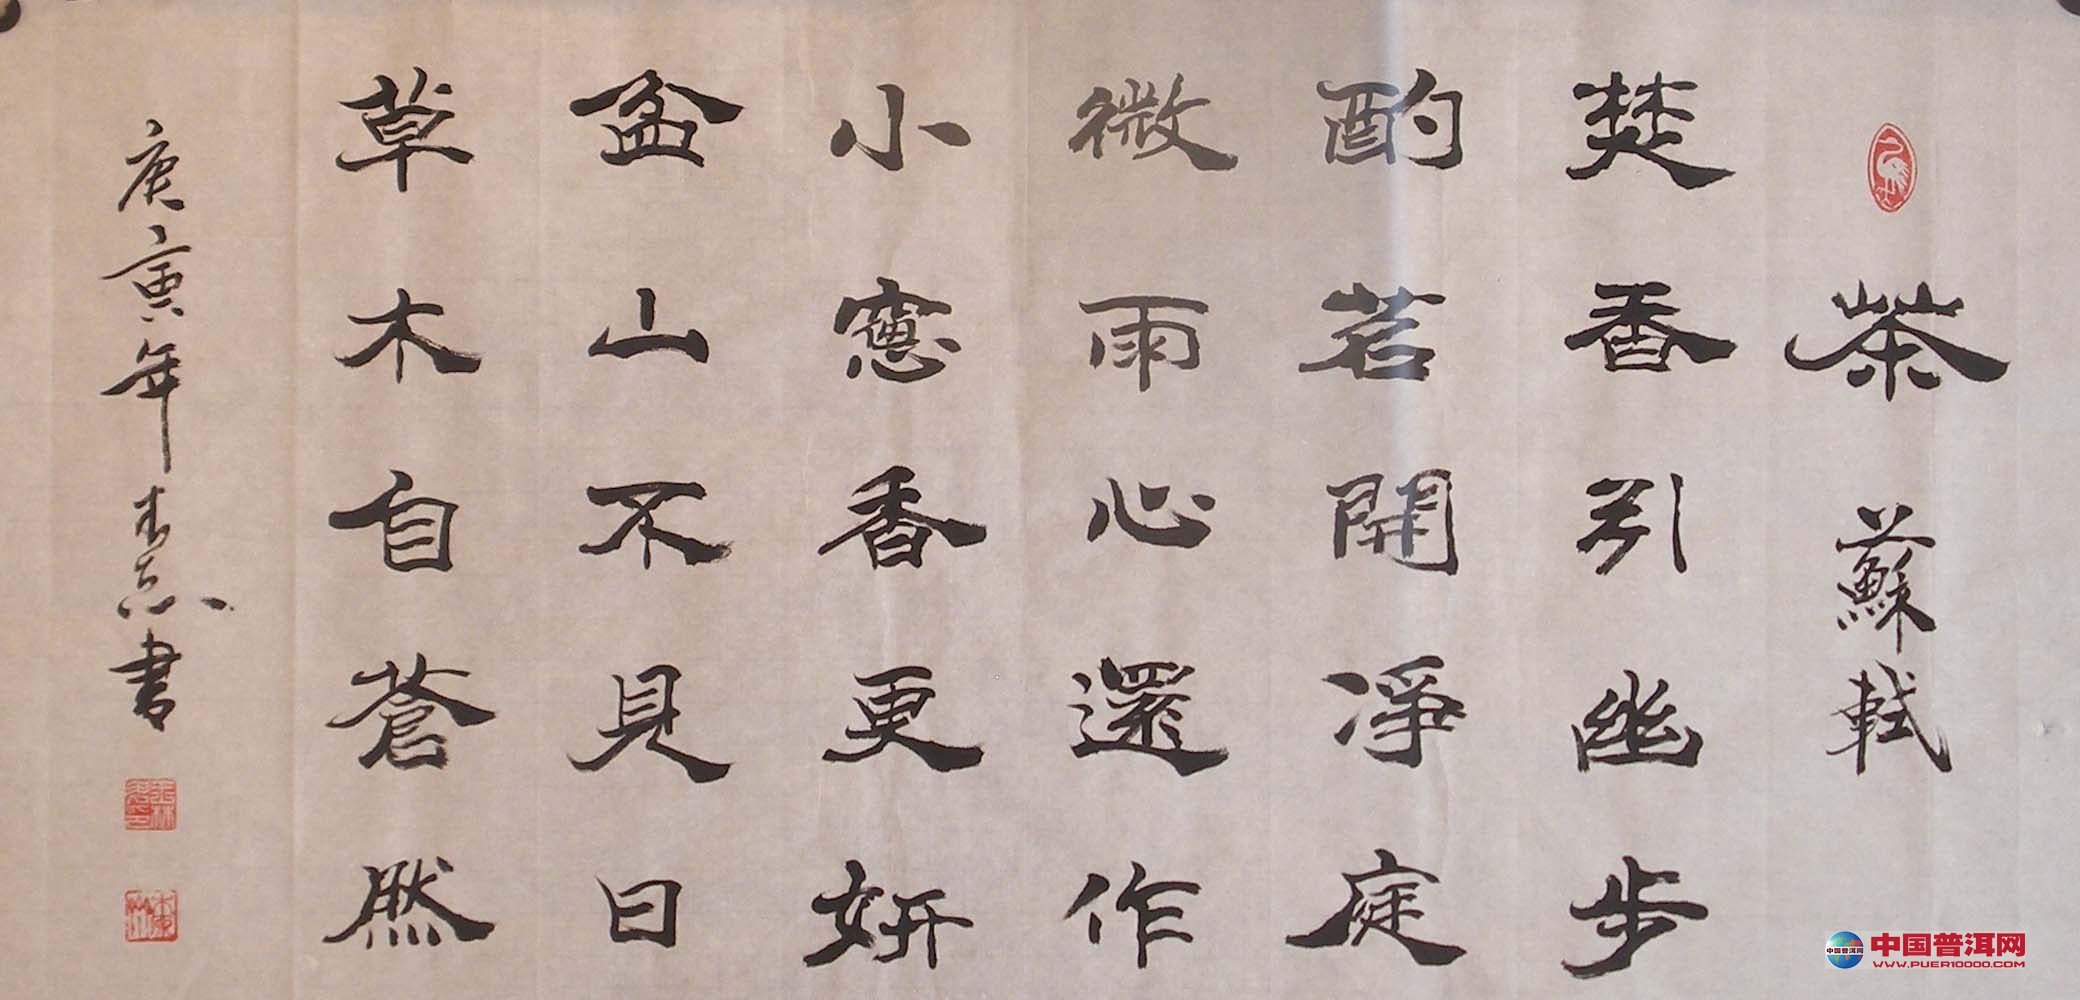 茶 蘇軾
焚香引幽步
酌茗開淨庭
微雨心還作
小窓香更妍
盆山不見日
草木自蒼然
庚寅年
志書
中国普洱网
WWW.PUER10000.COM